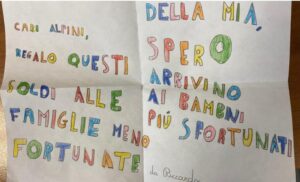 CARI ALPINI,
REGALO QUESTI
SOLDI ALLE
FAMIGLIE MENO
FORTUNATE
DELLA MIA,
SPERO
ARRIVINO
AI BAMBNI
PIÚ SFORTUNATI
da Riccardo